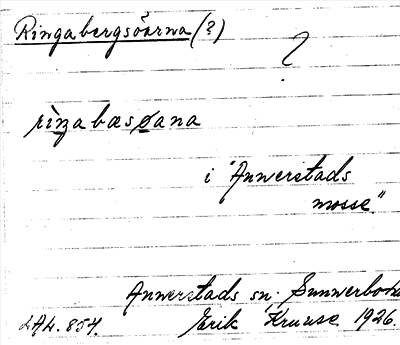 Ringabergsöarna (?)
?
riŋabæsøana
i "Annerstads
mosse."
Annerstads sn. Sunnerbo hd
LAL. 854. Erik Kruuse 1926.